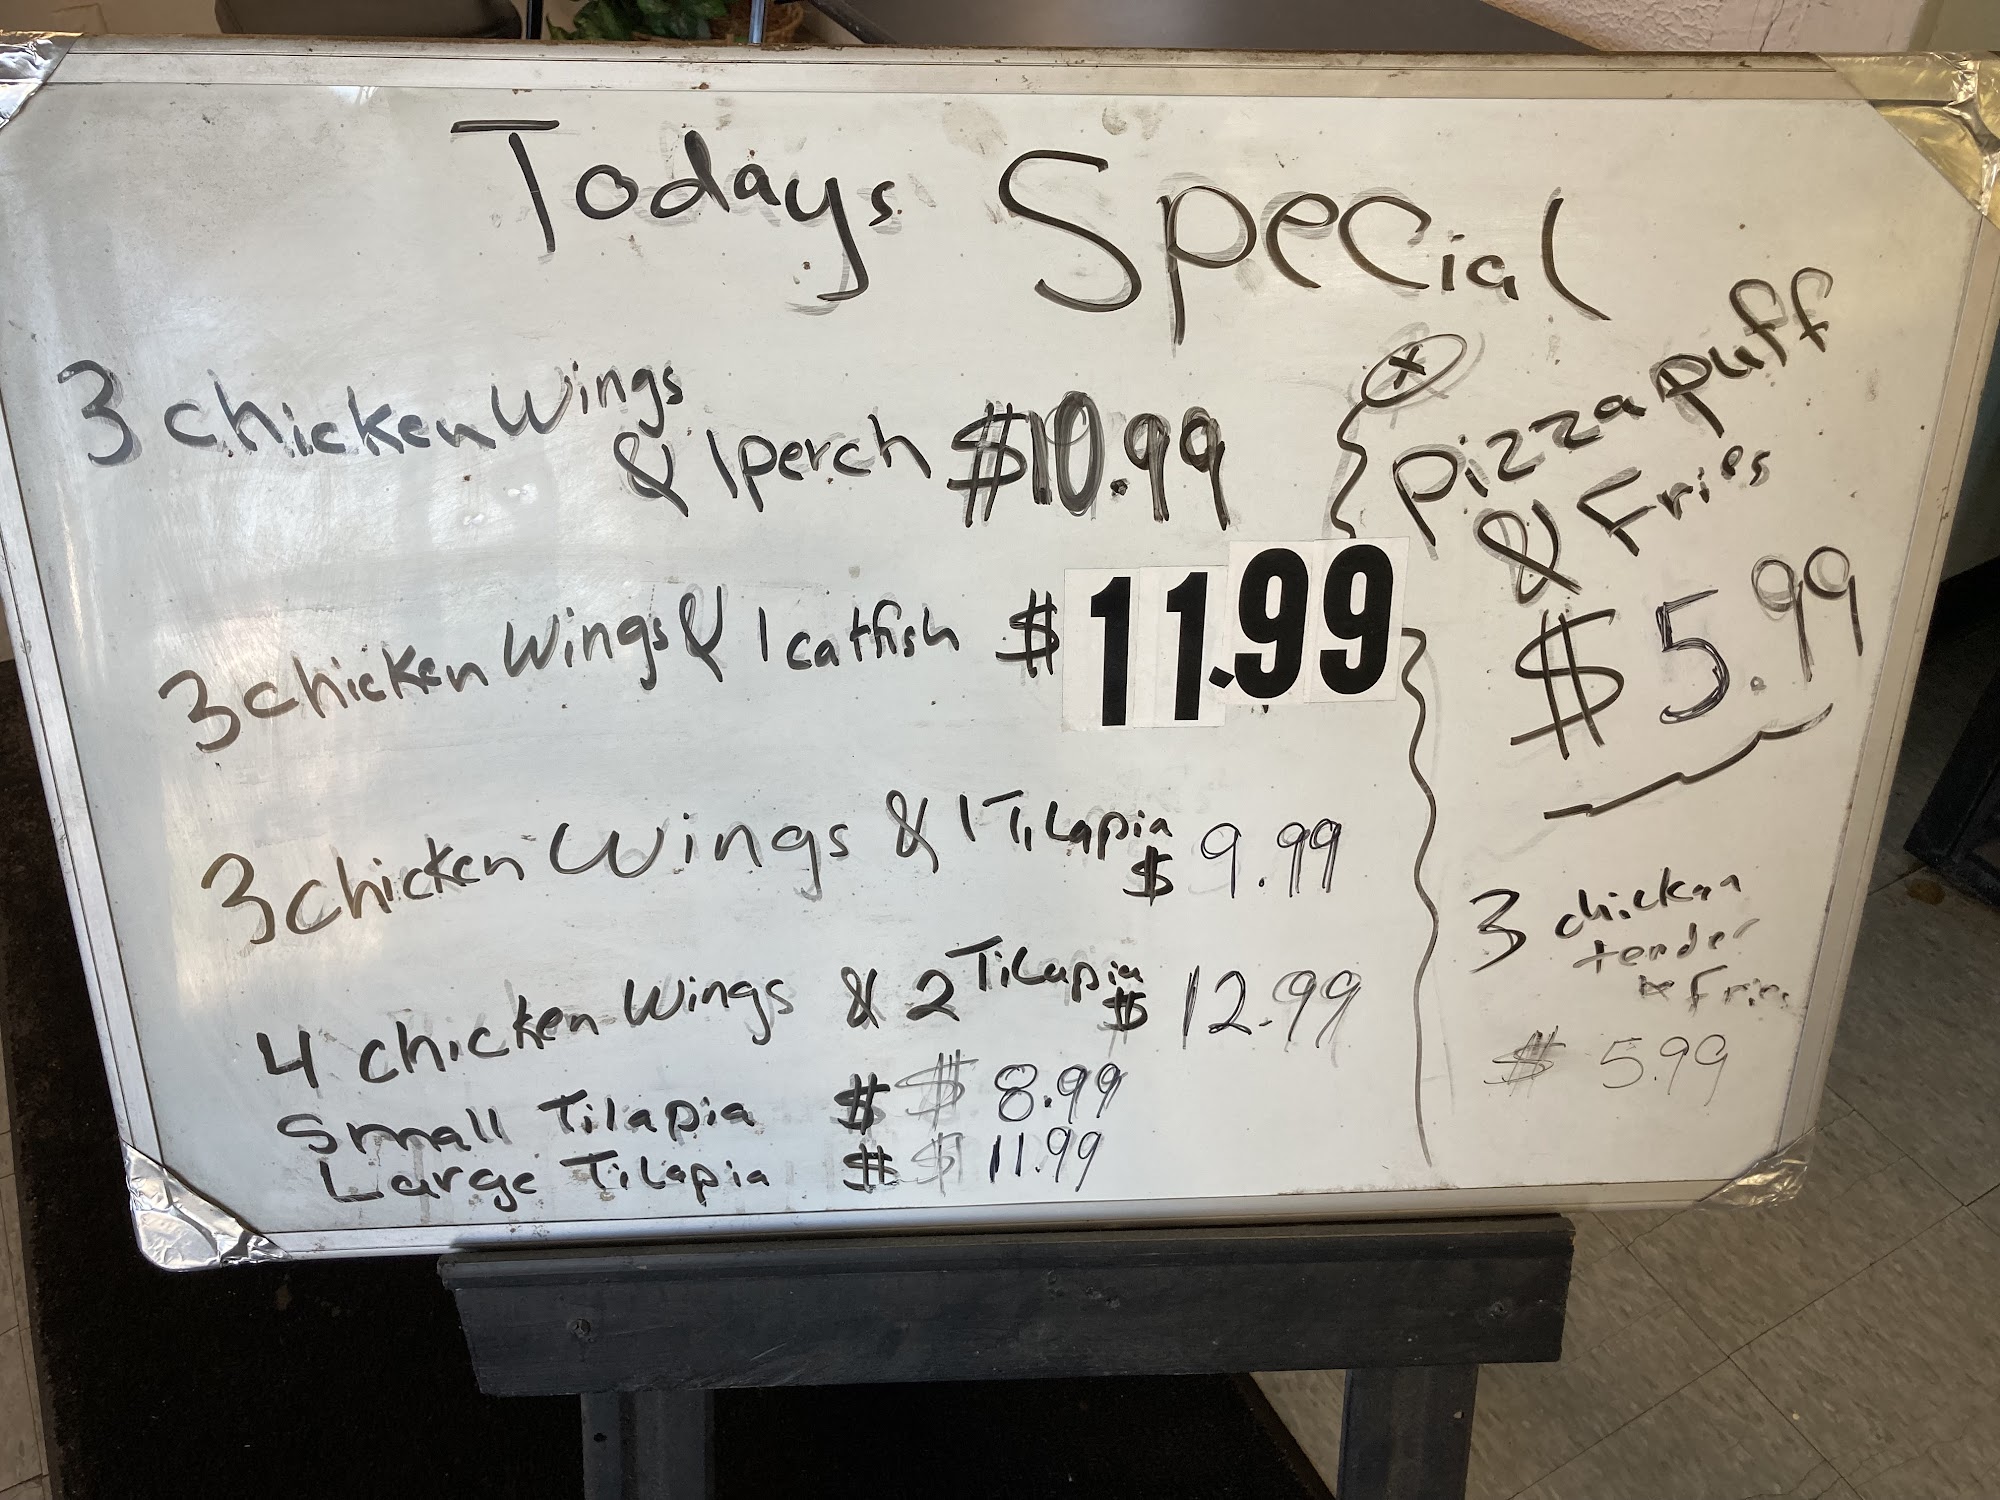 Todays Special
3 chicken wings
& 1 perch $10.99
3 chicken wings & 1 catfish $11.99
3 chicken wings & 1 Tilapia
$ 9.99
4 chicken wings & 2 Tilapia
$ 12.99
Small Tilapia $ $ 8.99
Large Tilapia $ $ 11.99
x
pizza puff
& Fries
$5.99
3 chicken
tender
& Fries
$ 5.99